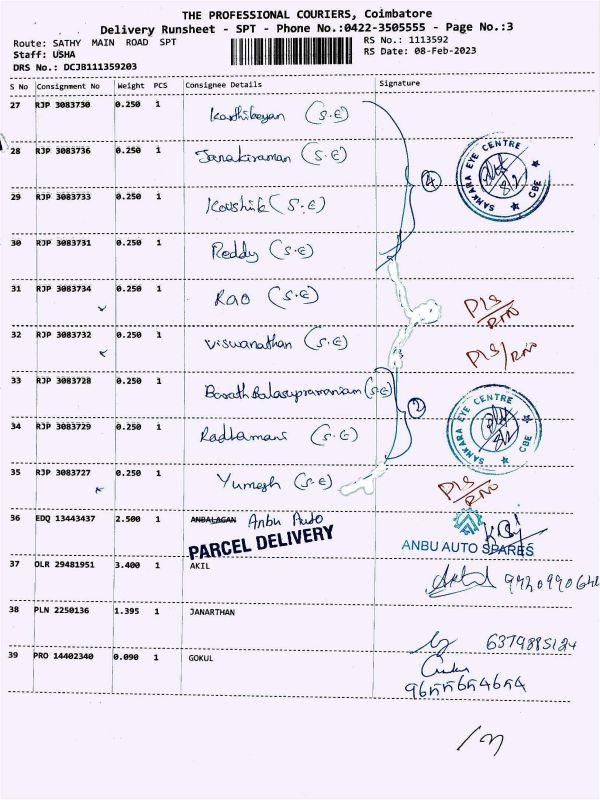 THE PROFESSIONAL COURIERS, Coimbatore
Delivery Runsheet - SPT - Phone No.:0422-3505555 - Page No.:3
Route: SATHY MAIN ROAD SPT
RS No.: 1113592
Staff: USHA
RS Date: 08-Feb-2023
DRS No.: DCJB111359203
S No Consignment No Weight PCS Consignee Details Signature
27 RJP 3083730 0.250 1 Karthikeyan (S.E)
28 RJP 3083736 0.250 1 Janakiraman (S.E)
4
SANKARA EYE CENTRE CBE
8/2
29 RJP 3083733 0.250 1 Koushik (S.E)
30 RJP 3083731 0.250 1 Reddy (S.E)
31 RJP 3083734 0.250 1 Rao (S.E) DIS/RTO
32 RJP 3083732 0.250 1 Viswanathan (S.E) DIS/RTO
33 RJP 3083728 0.250 1 Barath Balasupramaniam (S.E)
2
SANKARA EYE CENTRE CBE
8/2
34 RJP 3083729 0.250 1 (S.E)
35 RJP 3083727 0.250 1 Yumesh (S.E) DIS/RTO
36 EDQ 13443437 2.500 1 ANBALAGAN Anbu Auto
PARCEL DELIVERY
ANBU AUTO SPARES
37 OLR 29481951 3.400 1 AKIL
38 PLN 2250136 1.395 1 JANARTHAN
6379885124
39 PRO 14402340 0.090 1 GOKUL